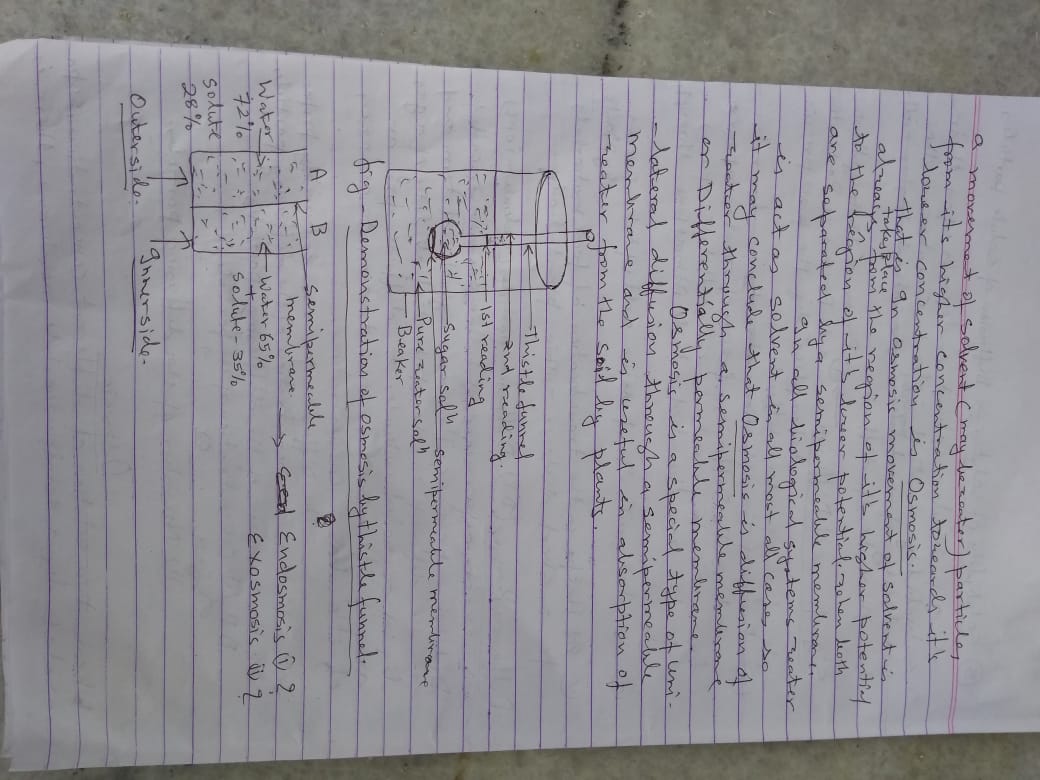 a movement of solvent (may be water) particles
from its higher concentration towards it's
lower concentration is Osmosis.
That is In Osmosis movement of solvent is
takes place
always from the region of it's higher potential
to the region of it's lower potential when both
are separated by a semipermeable membrane.
In all biological systems water
is act as solvent in all most all cases so
it may conclude that Osmosis is diffusion of
water through a semipermeable membrane
or Differentially permeable membrane.
Osmosis is a special type of uni-
-lateral diffusion through a semipermeable
membrane and is useful in absorption of
water from the soil by plants.
Thistle funnel
2nd reading.
1st reading
semipermeable membrane
Sugar solⁿ
Pure water solⁿ
Beaker
fig - Demonstration of osmosis by thistle funnel.
A B semipermeable
membrane → Endosmosis (i) ?
Exosmosis (ii) ?
Water
72%
solute
28%
Water 65%
+
solute - 35%
Outerside. Innerside.